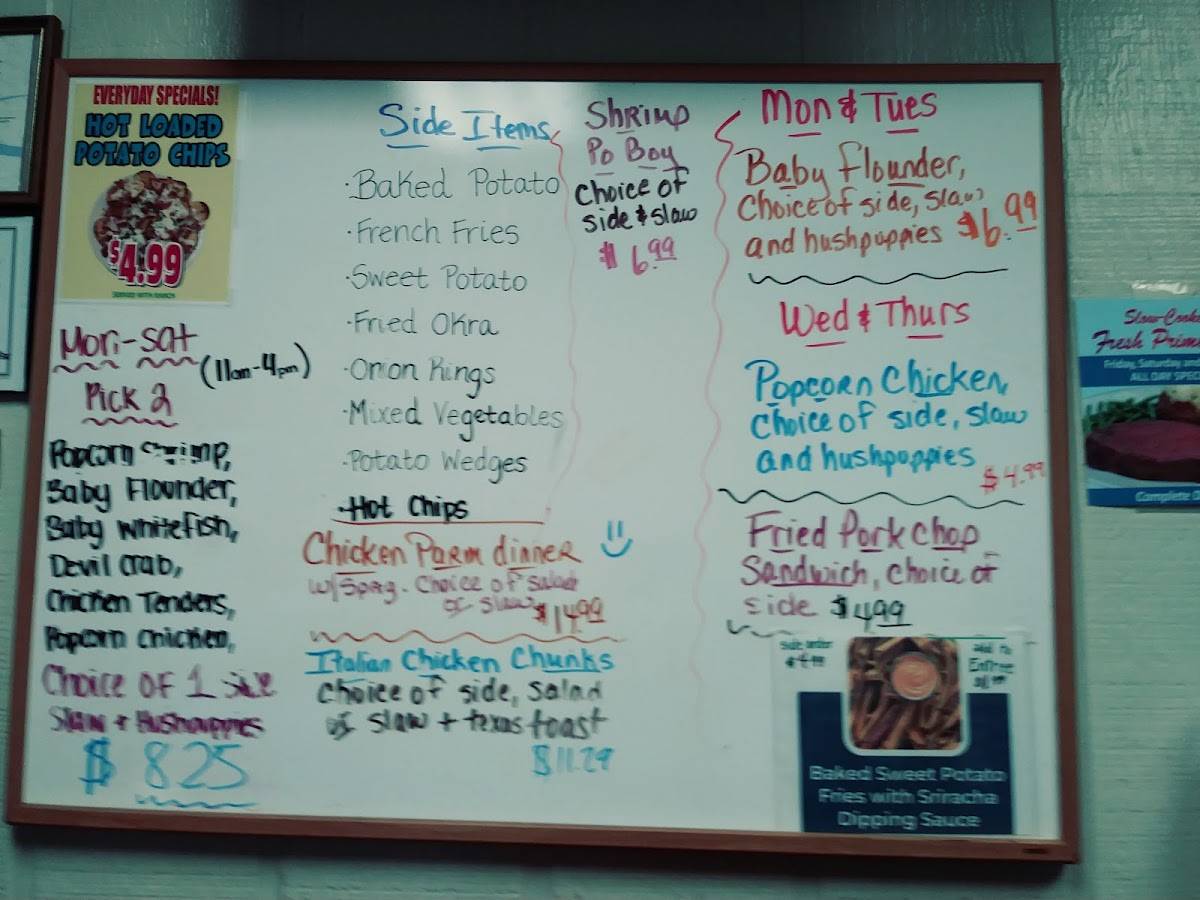 EVERYDAY SPECIALS!
HOT LOADED
POTATO CHIPS
$4.99
SERVED WITH RANCH
Mon-Sat
(11am-4pm)
Pick 2
Popcorn Shrimp,
Baby Flounder,
Baby Whitefish,
Devil Crab,
Chicken Tenders,
Popcorn Chicken,
Choice of 1 side
Slaw + Hushpuppies
$ 8.25
Side Items
·Baked Potato
·French Fries
·Sweet Potato
·Fried Okra
·Onion Rings
·Mixed Vegetables
·Potato Wedges
·Hot Chips
Chicken Parm dinner
w/Spag. Choice of Salad
or slaw $14.99
Italian Chicken Chunks
choice of side, salad
or slaw + texas toast
$11.29
Shrimp
Po Boy
choice of
side & slaw
$6.99
Mon & Tues
Baby flounder,
Choice of side, slaw
and hushpuppies $6.99
Wed & Thurs
Popcorn Chicken,
Choice of side, slaw
and hushpuppies
$4.99
Fried Pork chop
Sandwich, choice of
side $4.99
Side order
Add to
Entree
Baked Sweet Potato
Fries with Sriracha
Dipping Sauce
Slow-Cooke
Fresh Prim
Friday, Saturday an
ALL DAY SPEC
Complete D